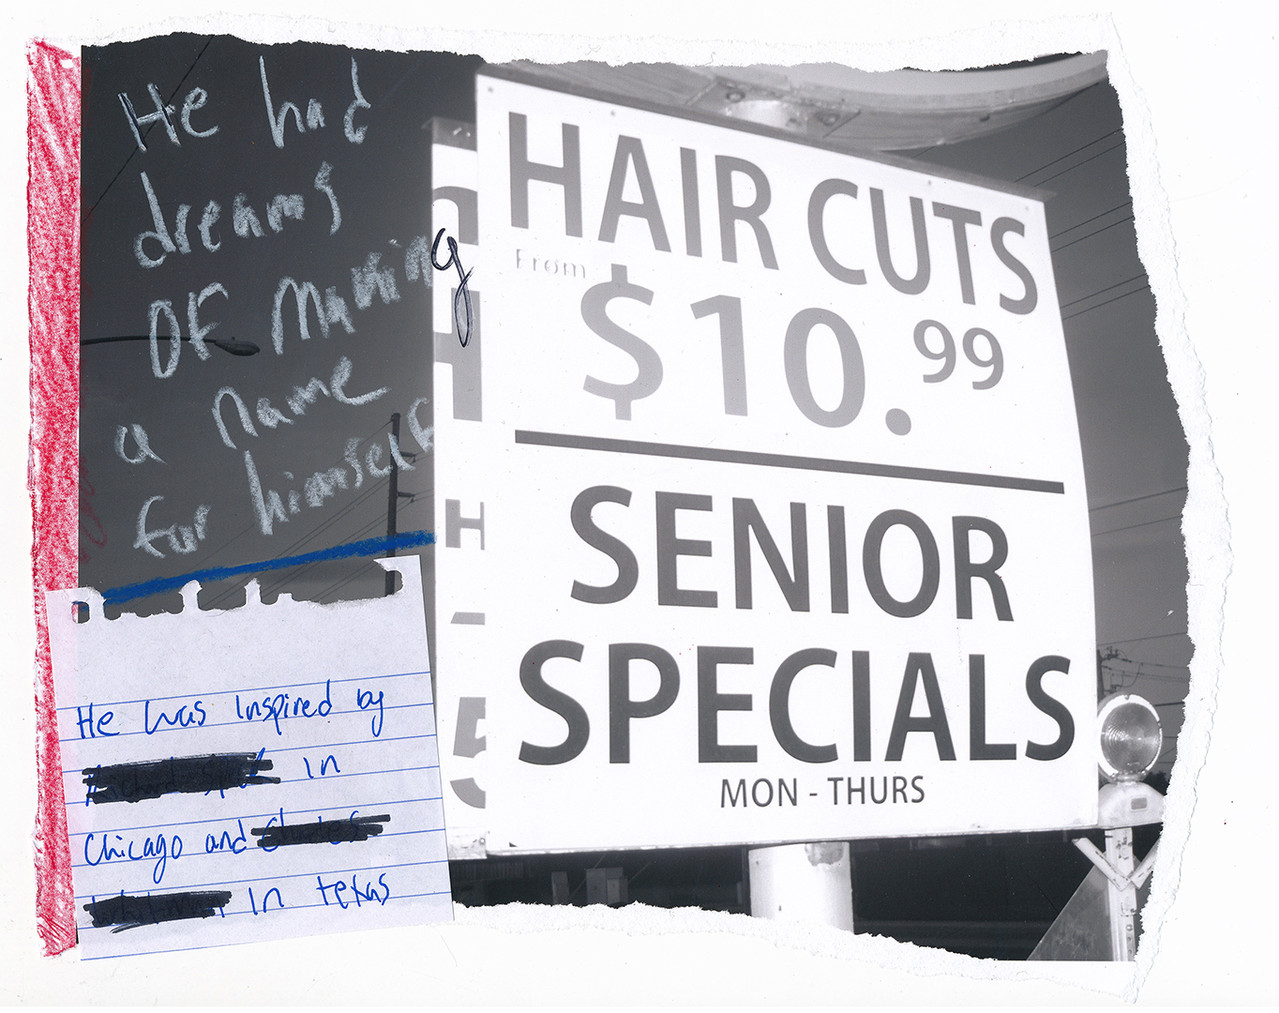 He had
dreams
OF Making
a name
for himself
HAIR CUTS
From
$10.99
SENIOR
SPECIALS
MON - THURS
He was inspired by
in
Chicago and
in texas